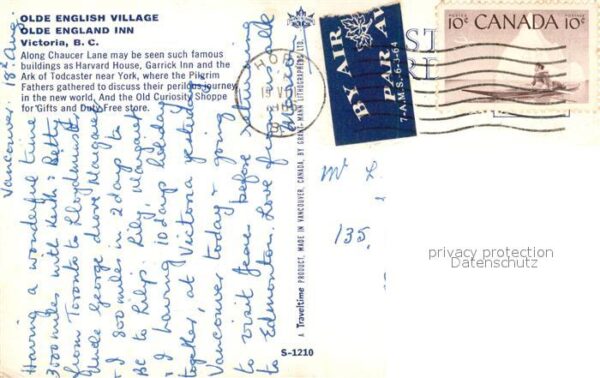 OLDE ENGLISH VILLAGE
OLDE ENGLAND INN
Victoria, B. C.
Along Chaucer Lane may be seen such famous
buildings as Harvard House, Garrick Inn and the
Ark of Todcaster near York, where the Pilgrim
Fathers gathered to discuss their perilous journey
in the new world. And the Old Curiosity Shoppe
for Gifts and Duty Free store.
Vancouver. 18th Aug.
Having a wonderful time
3500 miles with Keith & Betty
from Toronto to Lloydminster
Uncle George drove Margaret
& I 800 miles in 2 days to
BC to Lily. Lily, Margaret
& I having 10 days holiday
together, at Victoria yesterday,
Vancouver today & going
to visit before returning
to Edmonton. Love from
A Traveltime PRODUCT, MADE IN VANCOUVER, CANADA, BY GRANT-MANN LITHOGRAPHING LTD.
S-1210
BY AIR
PAR AV
7-A.M.S.-6-3-64
POSTAGE POSTES
10c CANADA 10c
Mr L
135.
privacy protection
Datenschutz